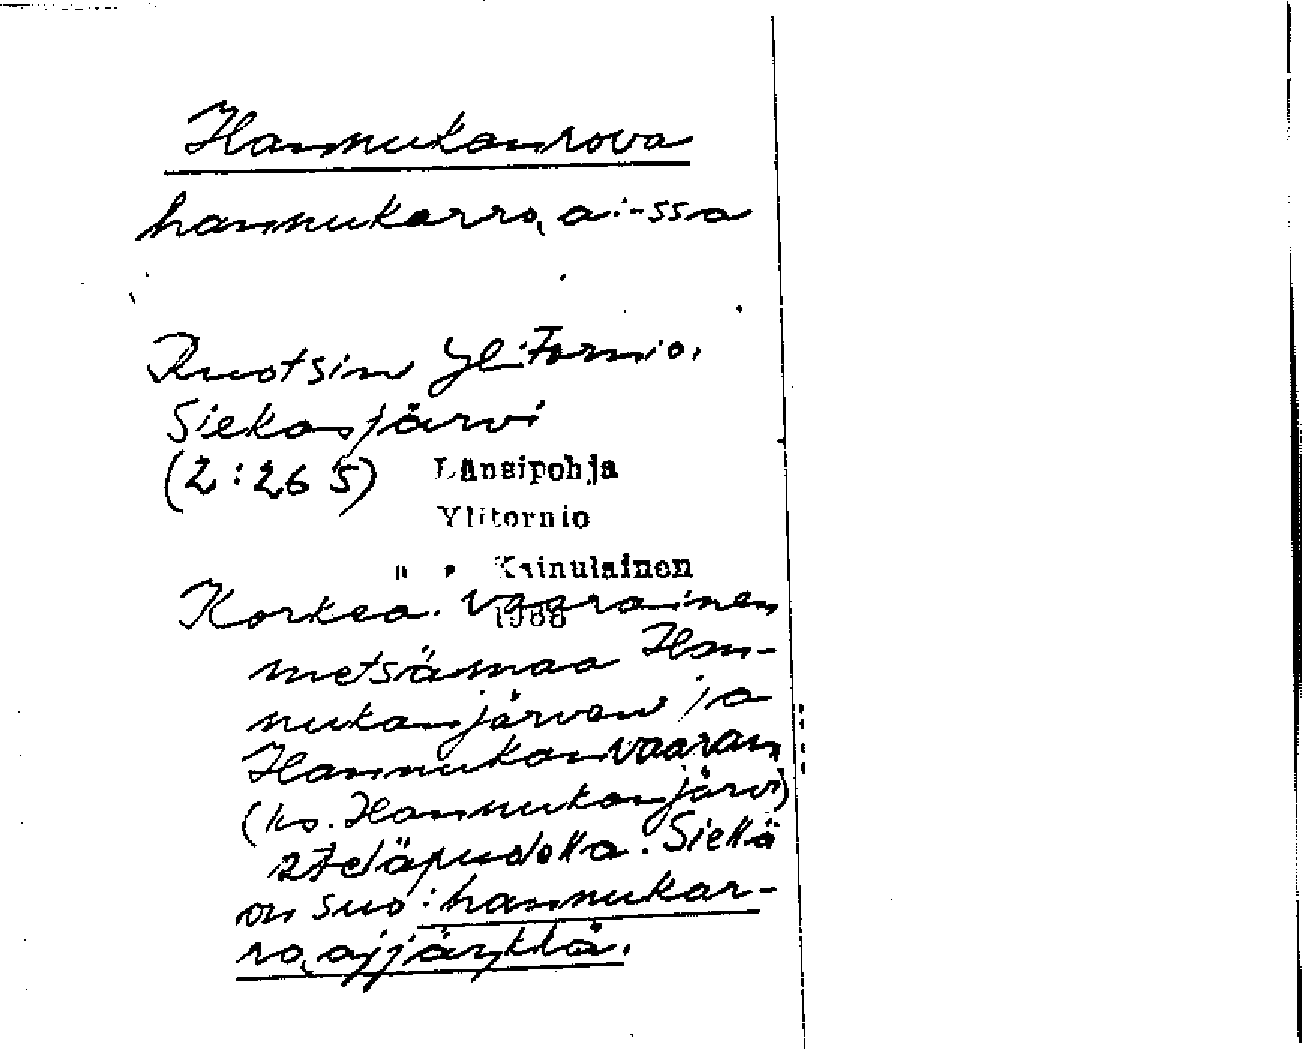 Hannukanrova
hannukarro, ai-ssa
Ruotsin Ylitornio.
Siekasjärvi
(2:265) Länsipohja
Ylitornio
Kainulainen
1966
Korkea. Vaarainen
metsämaa Han-
nukanjärven ja
Hannukanvaaran
(ks. Hannukanjärvi)
eteläpuolella. Siellä
on suo: hannukar-